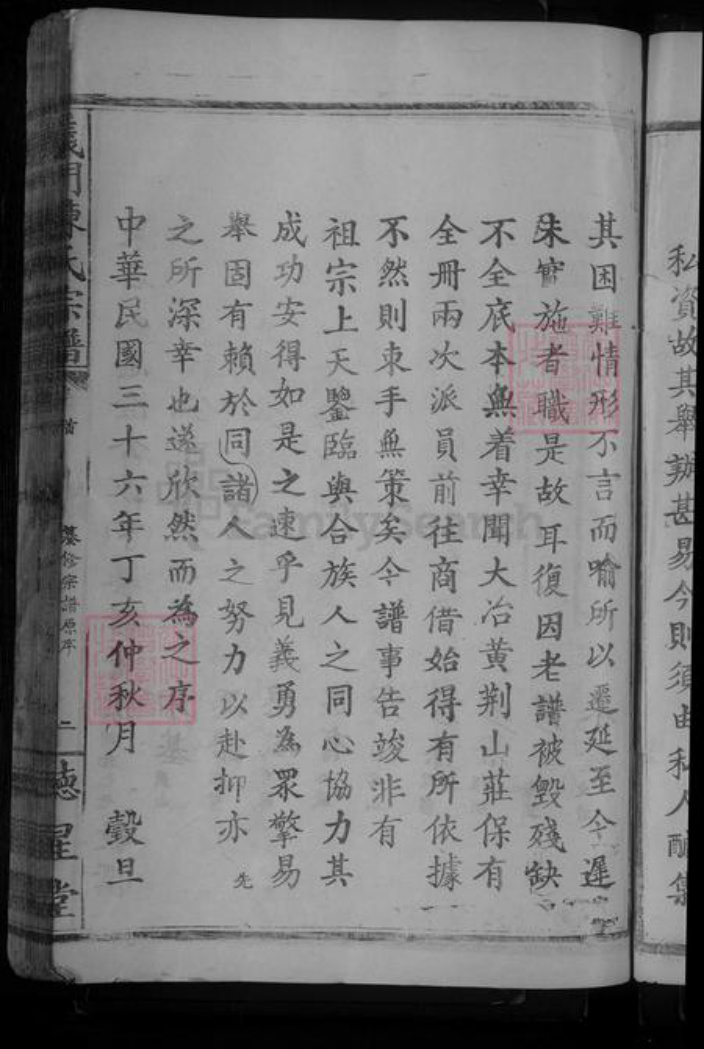 私資故其舉辦甚易今則須由私人醵集
其困難情形不言而喻所以遷延至今遲
未實施者職是故耳復因老譜被毀殘缺
不全底本無着幸聞大冶黄荆山莊保有
全冊兩次派員前往商借始得有所依據
不然則束手無策矣今譜事告竣非有
祖宗上天鑒臨與合族人之同心協力其
成功安得如是之速乎見義勇為眾擎易
舉固有賴於同諸人之努力以赴抑亦
先
之所深幸也遂欣然而為之序
中華民國三十六年丁亥仲秋月 穀旦
義門陳氏宗譜
首
纂修宗譜原序
二
德星堂
FamilySearch